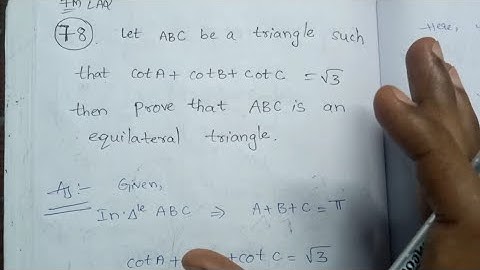 7M LAQ
78. Let ABC be a triangle such
that cotA + cotB + cotC = √3
then prove that ABC is an
equilateral triangle.
Given,
In Δle ABC ⇒ A+B+C = π
cotA + +cotC = √3
Here,